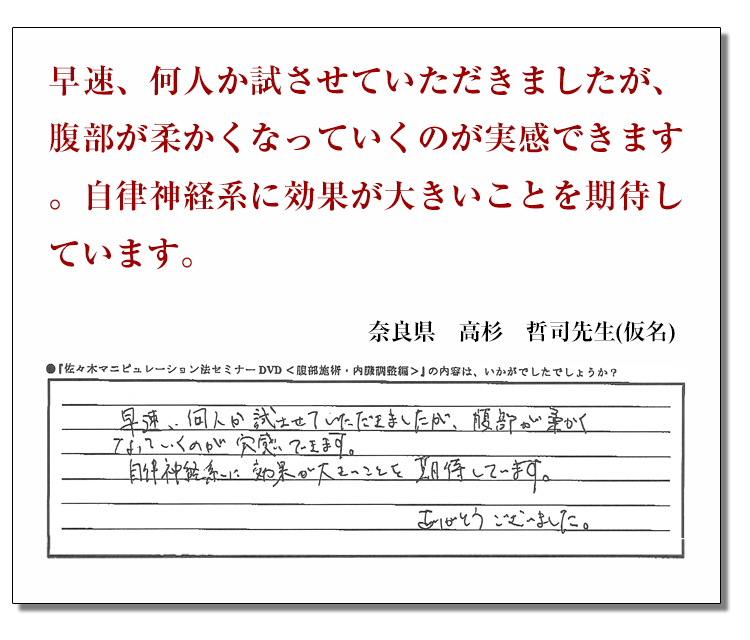 早速、何人か試させていただきましたが、
腹部が柔かくなっていくのが実感できます
。自律神経系に効果が大きいことを期待し
ています。
奈良県　高杉　哲司先生(仮名)
●『佐々木マニピュレーション法セミナーDVD＜腹部施術・内臓調整編＞』の内容は、いかがでしたでしょうか？
早速、何人か試させていただきましたが、腹部が柔かく
なっていくのが実感できます。
自律神経系に効果が大きいことを期待しています。
ありがとうございました。